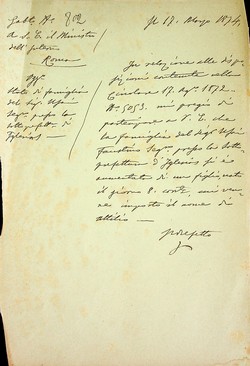 Gab.° N.° 202
a S. E. il Ministro
dell'Interno
Roma
Ogg.
Stato di famiglia
del Sig. Usai
Seg.° presso la
Sottoprefett.a di
Iglesias
li 17. Marzo 1874
In relazione alle dis
posizioni contenute nella
Circolare 17. Ag.° 1872.
N.° 5053. mi pregio di
partecipare a V. E. che
la famiglia del Seg.°
Faustino Seg.° presso la Sotto
prefettura d'Iglesias si è
aumentata di un figlio, nato
il giorno 8. corr.
ne imposto il nome di
Attilio —
Il Prefetto